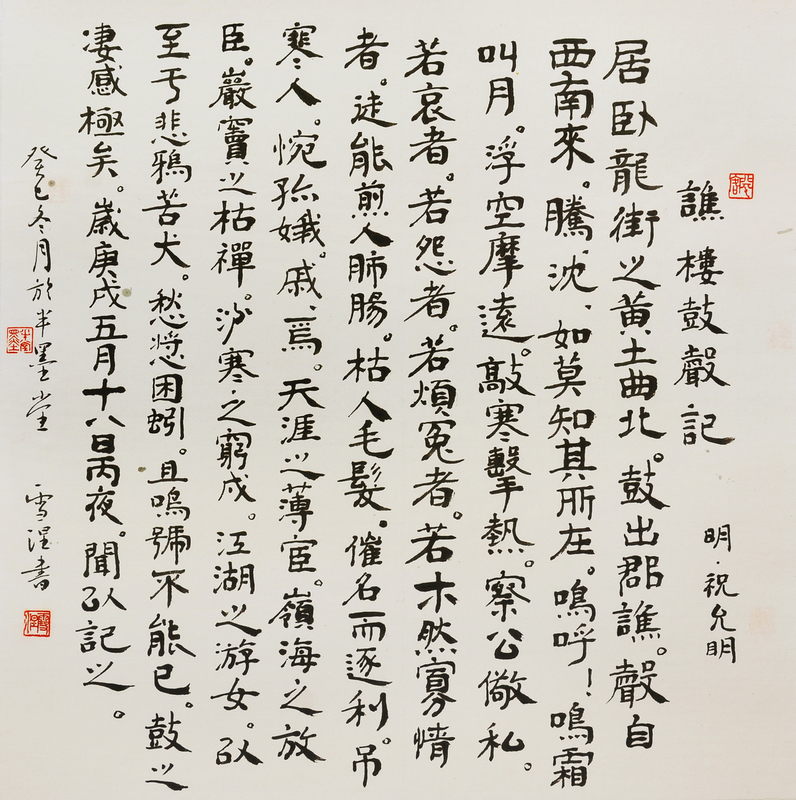 譙樓鼓聲記
明·祝允明
居卧龍街之黄土曲北。鼓出郡譙。聲自
西南來。騰、沈、如莫知其所在。嗚呼！鳴霜
叫月。浮空摩遠。敲寒擊熱。察公儆私。
若哀者。若怨者。若煩冤者。若木然寡情
者。徒能煎人肺腸。枯人毛髮。催名而逐利。吊
寒人。惋孤娥。戚、焉。天涯之薄宦。嶺海之放
臣。巖竇之枯禪。沙寒之窮戍。江湖之游女。以
至于悲鴉苦犬。愁螿困蚓。且鳴號不能已。鼓之
凄感極矣。歲庚戌五月十八日丙夜。聞以記之。
癸巳冬月於半墨堂 雪涅書